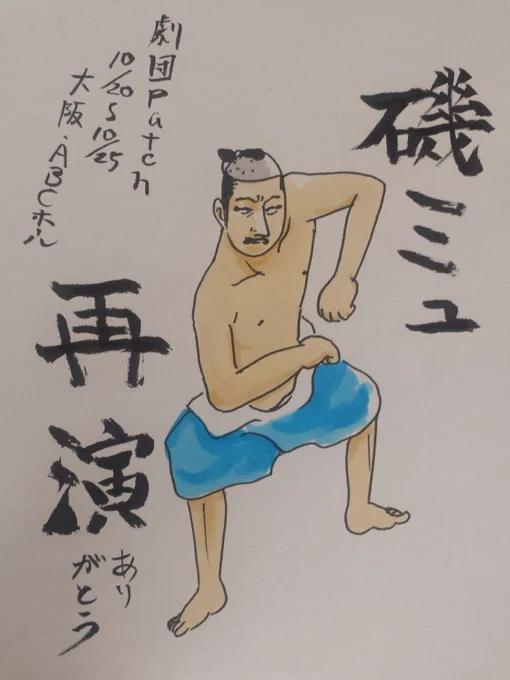 磯ミュ
劇団patch
10/20〜10/25
大阪・ABCホル
再演
ありがとう